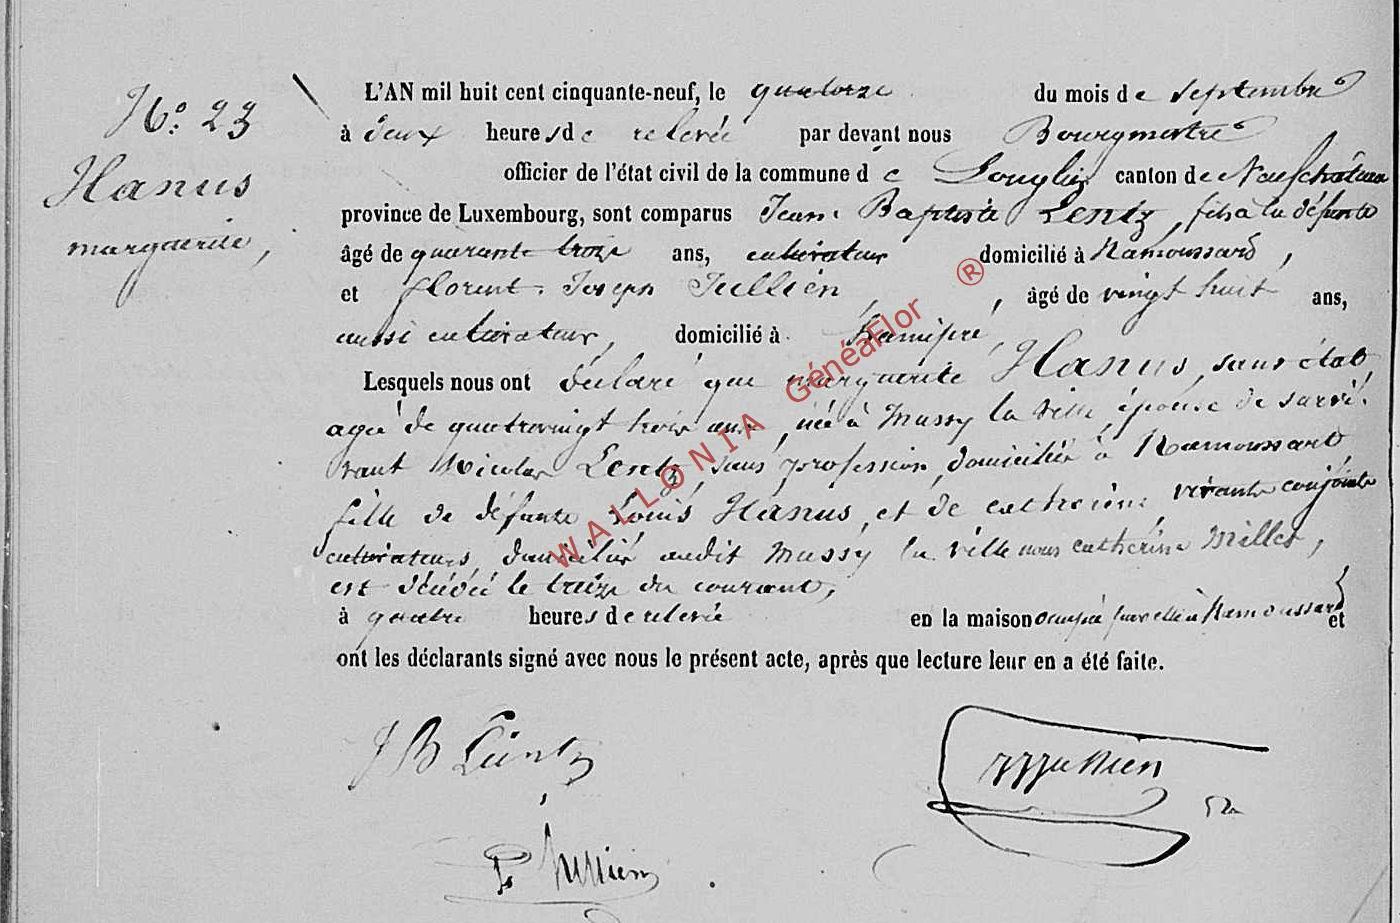 N.o 23
Hanus
marguerite,
L'AN mil huit cent cinquante-neuf, le quatorze du mois de septembre
à deux heures de relevée par devant nous Bourgmestre
officier de l'état civil de la commune de Longlier canton de Neufchateau
province de Luxembourg, sont comparus Jean Baptiste Lentz, fils à la défunte
âgé de quarante trois ans, cultivateur domicilié à Namoussard,
et florent Joseph Jullien, , âgé de vingt huit ans,
aussi cultivateur, domicilié à Hamipré,
Lesquels nous ont déclaré que marguerite Hanus, sans état,
agée de quatrevingt trois ans, née à Mussy la ville, épouse de survi-
vant Nicolas Lentz, sans profession, domicilié à Namoussart
fille de défunts Louis Hanus, et de catherine vivants conjoints
cultivateurs, domiciliés audit Mussy la ville nous catherine Millet,
est décédée le treize du courant,
à quatre heures de relevée en la maison occupée par elle à Namoussard et
ont les déclarants signé avec nous le présent acte, après que lecture leur en a été faite.
J B Lentz
Jullien
Jullien
WALLONIA GénéaFlor ®